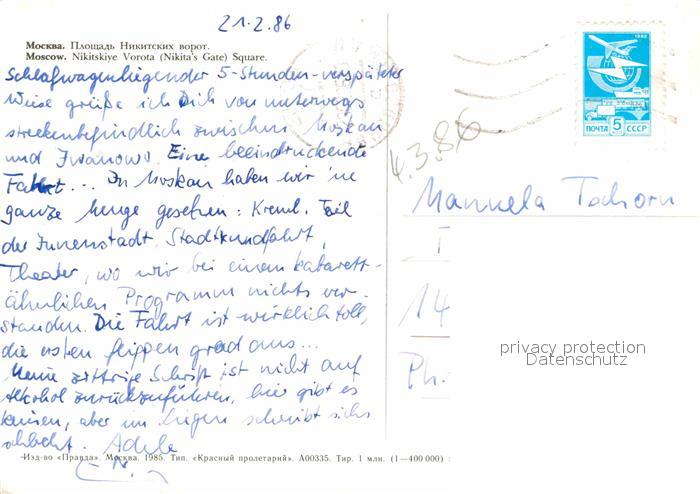 21.2.86
Москва. Площадь Никитских ворот.
Moscow. Nikitskiye Vorota (Nikita's Gate) Square.
Schlafwagenliegender 5-Stunden-verspäteter
Weise grüße ich Dich von unterwegs
streckenbefindlich zwischen Moskau
und Iwanowo. Eine beeindruckende
Fahrt... In Moskau haben wir 'ne
ganze Menge gesehen: Kreml, Teil
der Innenstadt, Stadtrundfahrt,
Theater, wo wir bei einem kabarett-
ähnlichen Programm nichts ver-
standen. Die Fahrt ist wirklich toll,
die ersten flippen grad aus...
Meine zittrige Schrift ist nicht auf
Alkohol zurückzuführen, hier gibt es
keinen, aber im Liegen schreibt sichs
schlecht. Adele
Изд-во «Правда». Москва. 1985. Тип. «Красный пролетарий». А00335. Тир. 1 млн. (1—400 000)
1982
ПОЧТА 5 СССР
4.3.86
Manuela Tschorn
T
14
Ph.
privacy protection
Datenschutz